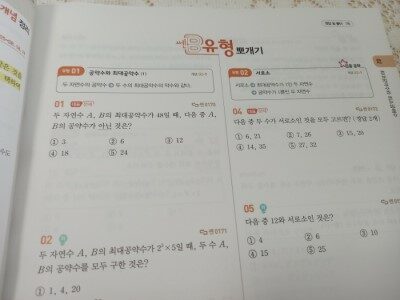 개념
B유형 뽀개기
유형 01 공약수와 최대공약수 (1)
두 자연수의 공약수 두 수의 최대공약수의 약수와 같다.
01
두 자연수 A, B의 최대공약수가 48일 때, 다음 중 A,
B의 공약수가 아닌 것은?
① 3 ② 6 ③ 12
④ 18 ⑤ 24
0171
02
두 자연수 A, B의 최대공약수가 2²×5일 때, 두 수 A,
B의 공약수를 모두 구한 것은?
① 1, 4, 20
유형 02 서로소
서로소 최대공약수가 1인 두 자연수
공약수가 1뿐인 두 자연수
04
다음 중 두 수가 서로소인 것을 모두 고르면? (정답 2개)
① 6, 21 ② 7, 26 ③ 15, 28
④ 14, 35 ⑤ 27, 32
05
다음 중 12와 서로소인 것은?
① 4 ② 6 ③ 10
④ 15 ⑤ 25